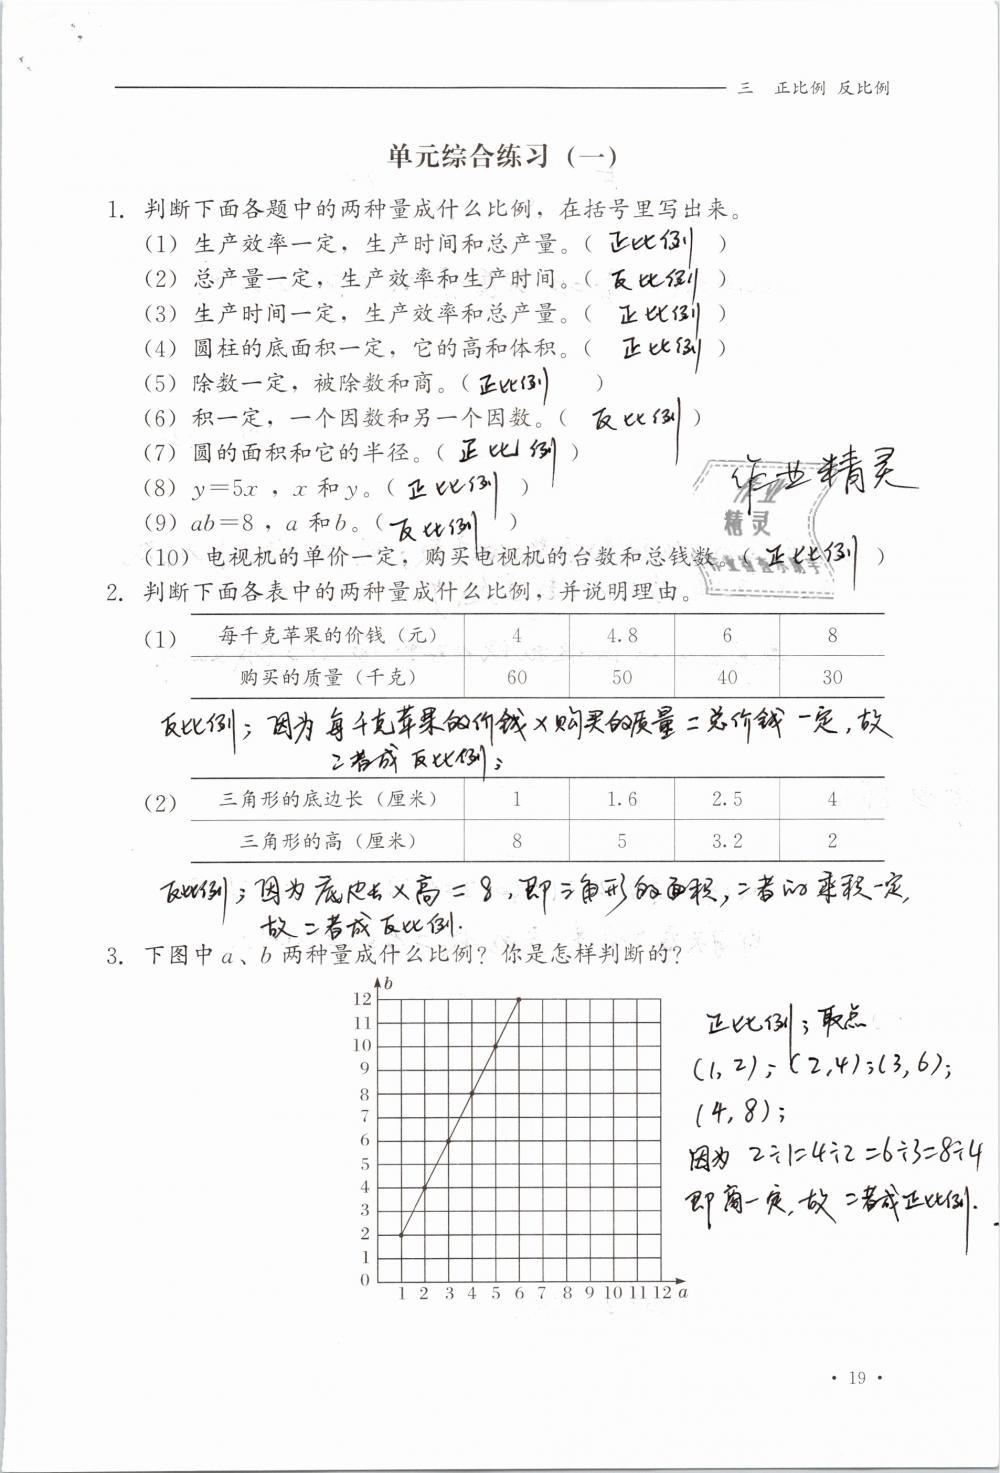 三 正比例 反比例
单元综合练习（一）
1. 判断下面各题中的两种量成什么比例，在括号里写出来。
（1）生产效率一定，生产时间和总产量。（ 正比例 ）
（2）总产量一定，生产效率和生产时间。（ 反比例 ）
（3）生产时间一定，生产效率和总产量。（ 正比例 ）
（4）圆柱的底面积一定，它的高和体积。（ 正比例 ）
（5）除数一定，被除数和商。（ 正比例 ）
（6）积一定，一个因数和另一个因数。（ 反比例 ）
（7）圆的面积和它的半径。（ 正比例 ）
（8）y=5x，x 和 y。（ 正比例 ）
作业精灵
精灵
（9）ab=8，a 和 b。（ 反比例 ）
（10）电视机的单价一定，购买电视机的台数和总钱数。（ 正比例 ）
2. 判断下面各表中的两种量成什么比例，并说明理由。
（1） 每千克苹果的价钱（元） 4 4.8 6 8
购买的质量（千克） 60 50 40 30
反比例；因为每千克苹果的价钱×购买的质量=总价钱一定，故
二者成反比例；
（2） 三角形的底边长（厘米） 1 1.6 2.5 4
三角形的高（厘米） 8 5 3.2 2
反比例；因为底边长×高=8，即三角形的面积，二者的乘积一定，
故二者成反比例.
3. 下图中 a、b 两种量成什么比例？你是怎样判断的？
b
12
11
10
9
8
7
6
5
4
3
2
1
0
1 2 3 4 5 6 7 8 9 10 11 12 a
正比例；取点
(1,2)；(2,4)；(3,6)；
(4,8)；
因为 2÷1=4÷2=6÷3=8÷4
即商一定，故二者成正比例.
· 19 ·